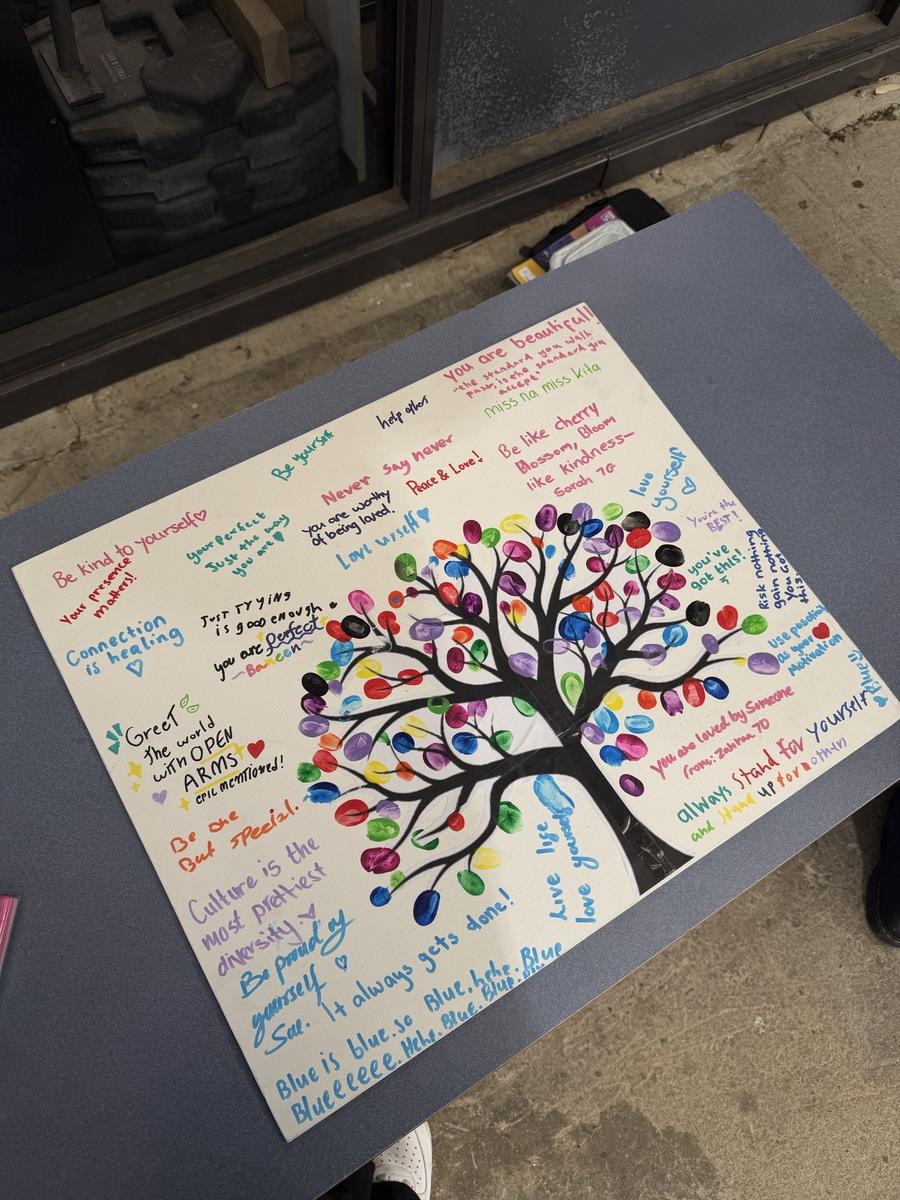 You are beautiful!
"the standard you walk
past, is the standard you
accept"
miss na miss kita
help others
Be yourself
Never say never
Peace & Love!
Be like cherry
Blossom, Bloom
like kindness—
Sarah 7G
You are worthy
of being loved!
Love urself
love
yourself
You're the
BEST!
Be kind to yourself
Your presence
matters!
your perfect
Just the way
you are
you've
got this!
Risk nothing
gain nothing
You got
this!
Connection
is healing
JUST TRYING
is good enough
you are perfect
~Baneen~
use
as your
Motivation
Blue!!
GreeT
The world
with OPEN
ARMS
epic mentioned!
you are loved by Someone
from: Zahraa 7D
always Stand for yourself
and stand up for others
Be one
But special.
Culture is the
most prettiest
diversity.
Live life
love yourself
Be proud of
yourself
Sae. It always gets done!
Blue is blue.so Blue.hehe.Blue
Blueeeeee.Hehe.Blue.Blue.Blue